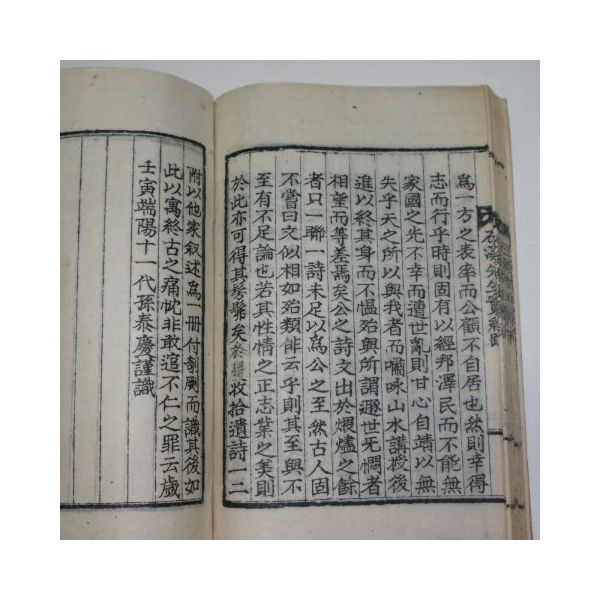 爲一方之表率而公顧不自居也然則幸得
志而行乎時則固有以經邦澤民而不能無
家國之光不幸而遭世亂則甘心自靖以無
失乎天之所以與我者而嘯咏山水講授後
進以終其身而不慍殆與所謂遯世旡憫者
相望而等差焉矣公之詩文出於煨燼之餘
者只一聯一詩未足以爲公之至然古人固
不嘗曰文似相如殆類俳云乎則其至與不
至有不足論也若其性情之正志業之美則
於此亦可得其髣髴矣泰慶收拾遺詩一二
附以他家叙述爲一冊付剞劂而識其後如
此以寓終古之痛忱非敢追不仁之罪云歲
壬寅端陽十一代孫泰慶謹識
先生實紀